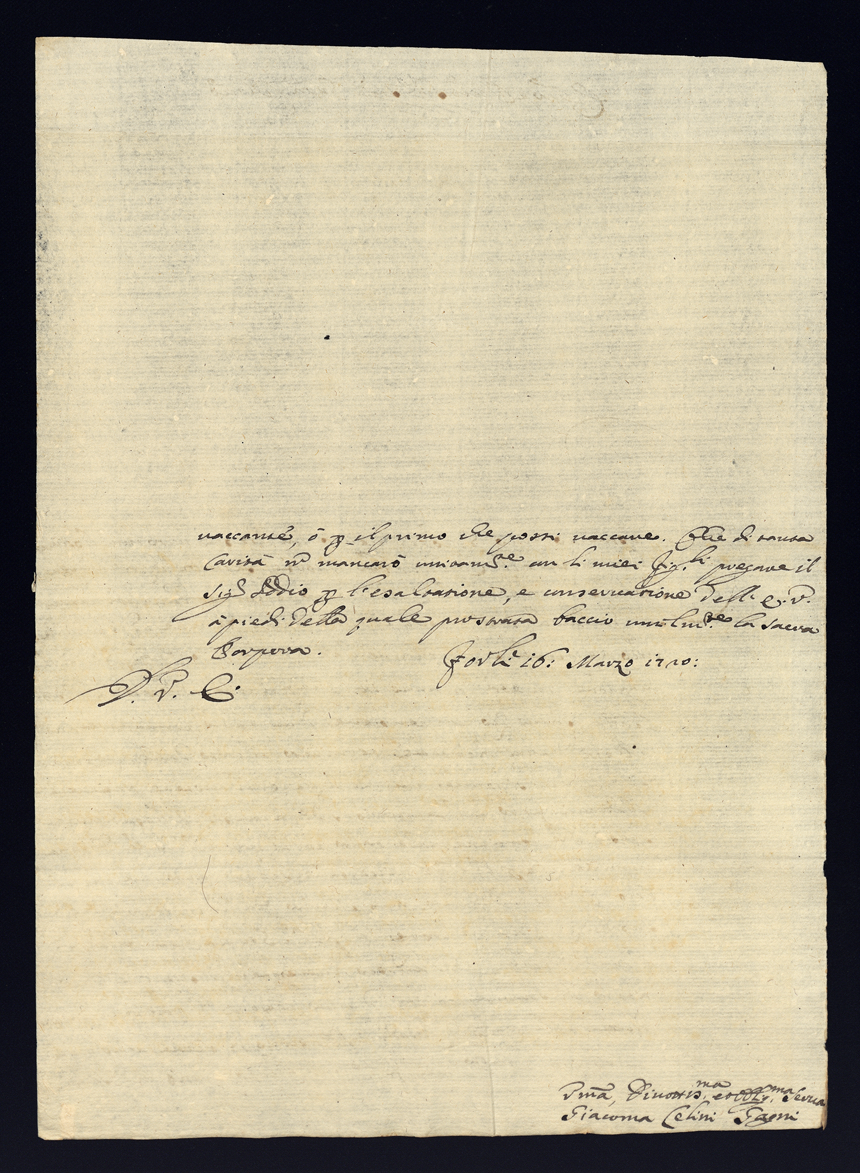 vaccante, ò p il primo che possi vaccare. Che di tanta
Carità nō mancarò unitam.te con li miei Figli pregare il
Sig.e Iddio p l'esaltazione, e conservazione dell' E. V.
à piedi della quale prostrata baccio umilm.te la Sacra
Porpora. Forlì 16: Marzo 1710:
D. V. E.
Vmā, Divotis.ma et Obblig.ma Serva
Giacoma Celini